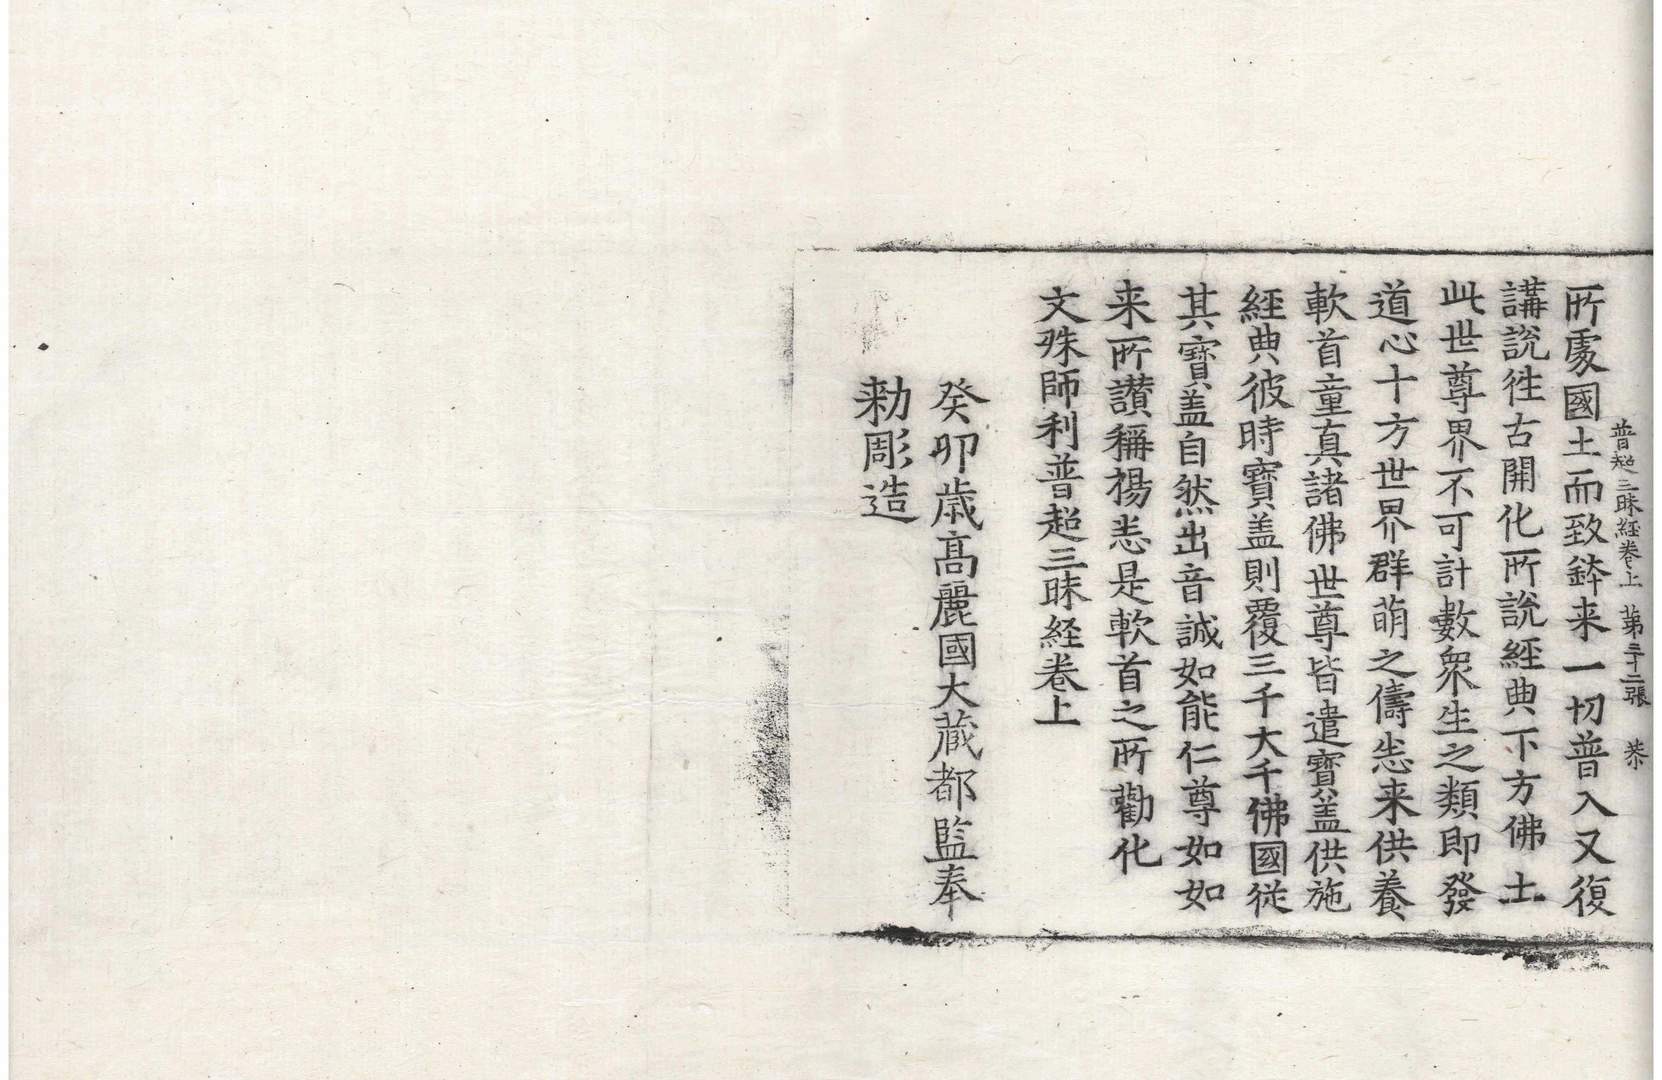 普超三昧經卷上 第三十二張 恭
所處國土而致鉢来一切普入又復
講說徃古開化所說經典下方佛土
此世尊界不可計數衆生之類即發
道心十方世界群萌之儔悉来供養
軟首童真諸佛世尊皆遣寶盖供施
經典彼時寶盖則覆三千大千佛國從
其寶盖自然出音誠如能仁尊如如
来所讃稱揚悉是軟首之所勸化
文殊師利普超三昧経卷上
癸卯歳髙麗國大藏都監奉
勅彫造